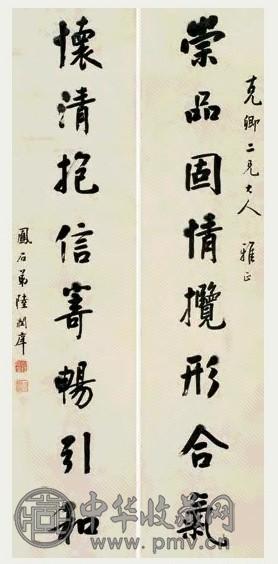 克卿二兄大人 雅正
崇品固情攬形合氣
懷清抱信寄暢引和
鳳石弟陸潤庠
中华收藏网
www.pmv.cn